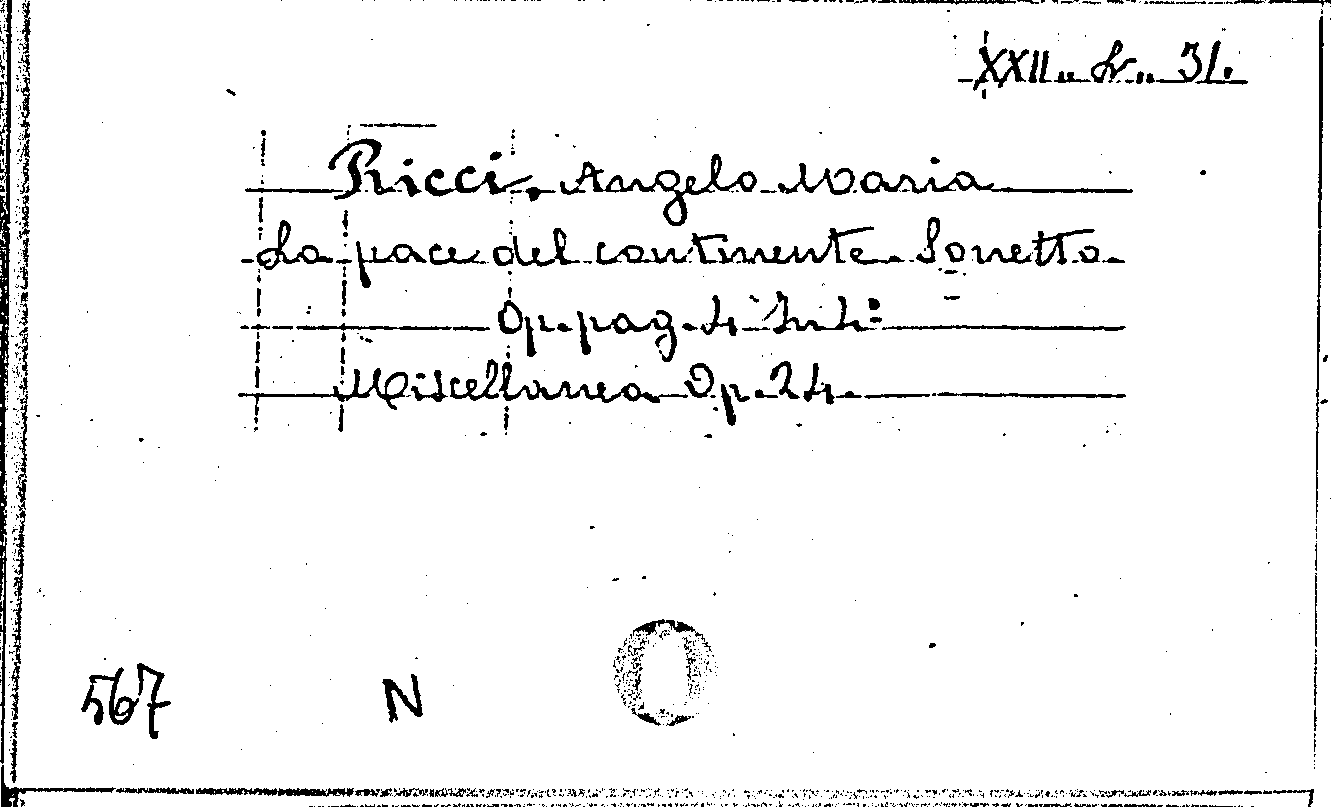 XXII. Sr. 31.
Ricci, Angelo Maria
La pace del continente. Sonetto.
Op. pag. 4 In 4º
Miscellanea Op. 24.
567 N